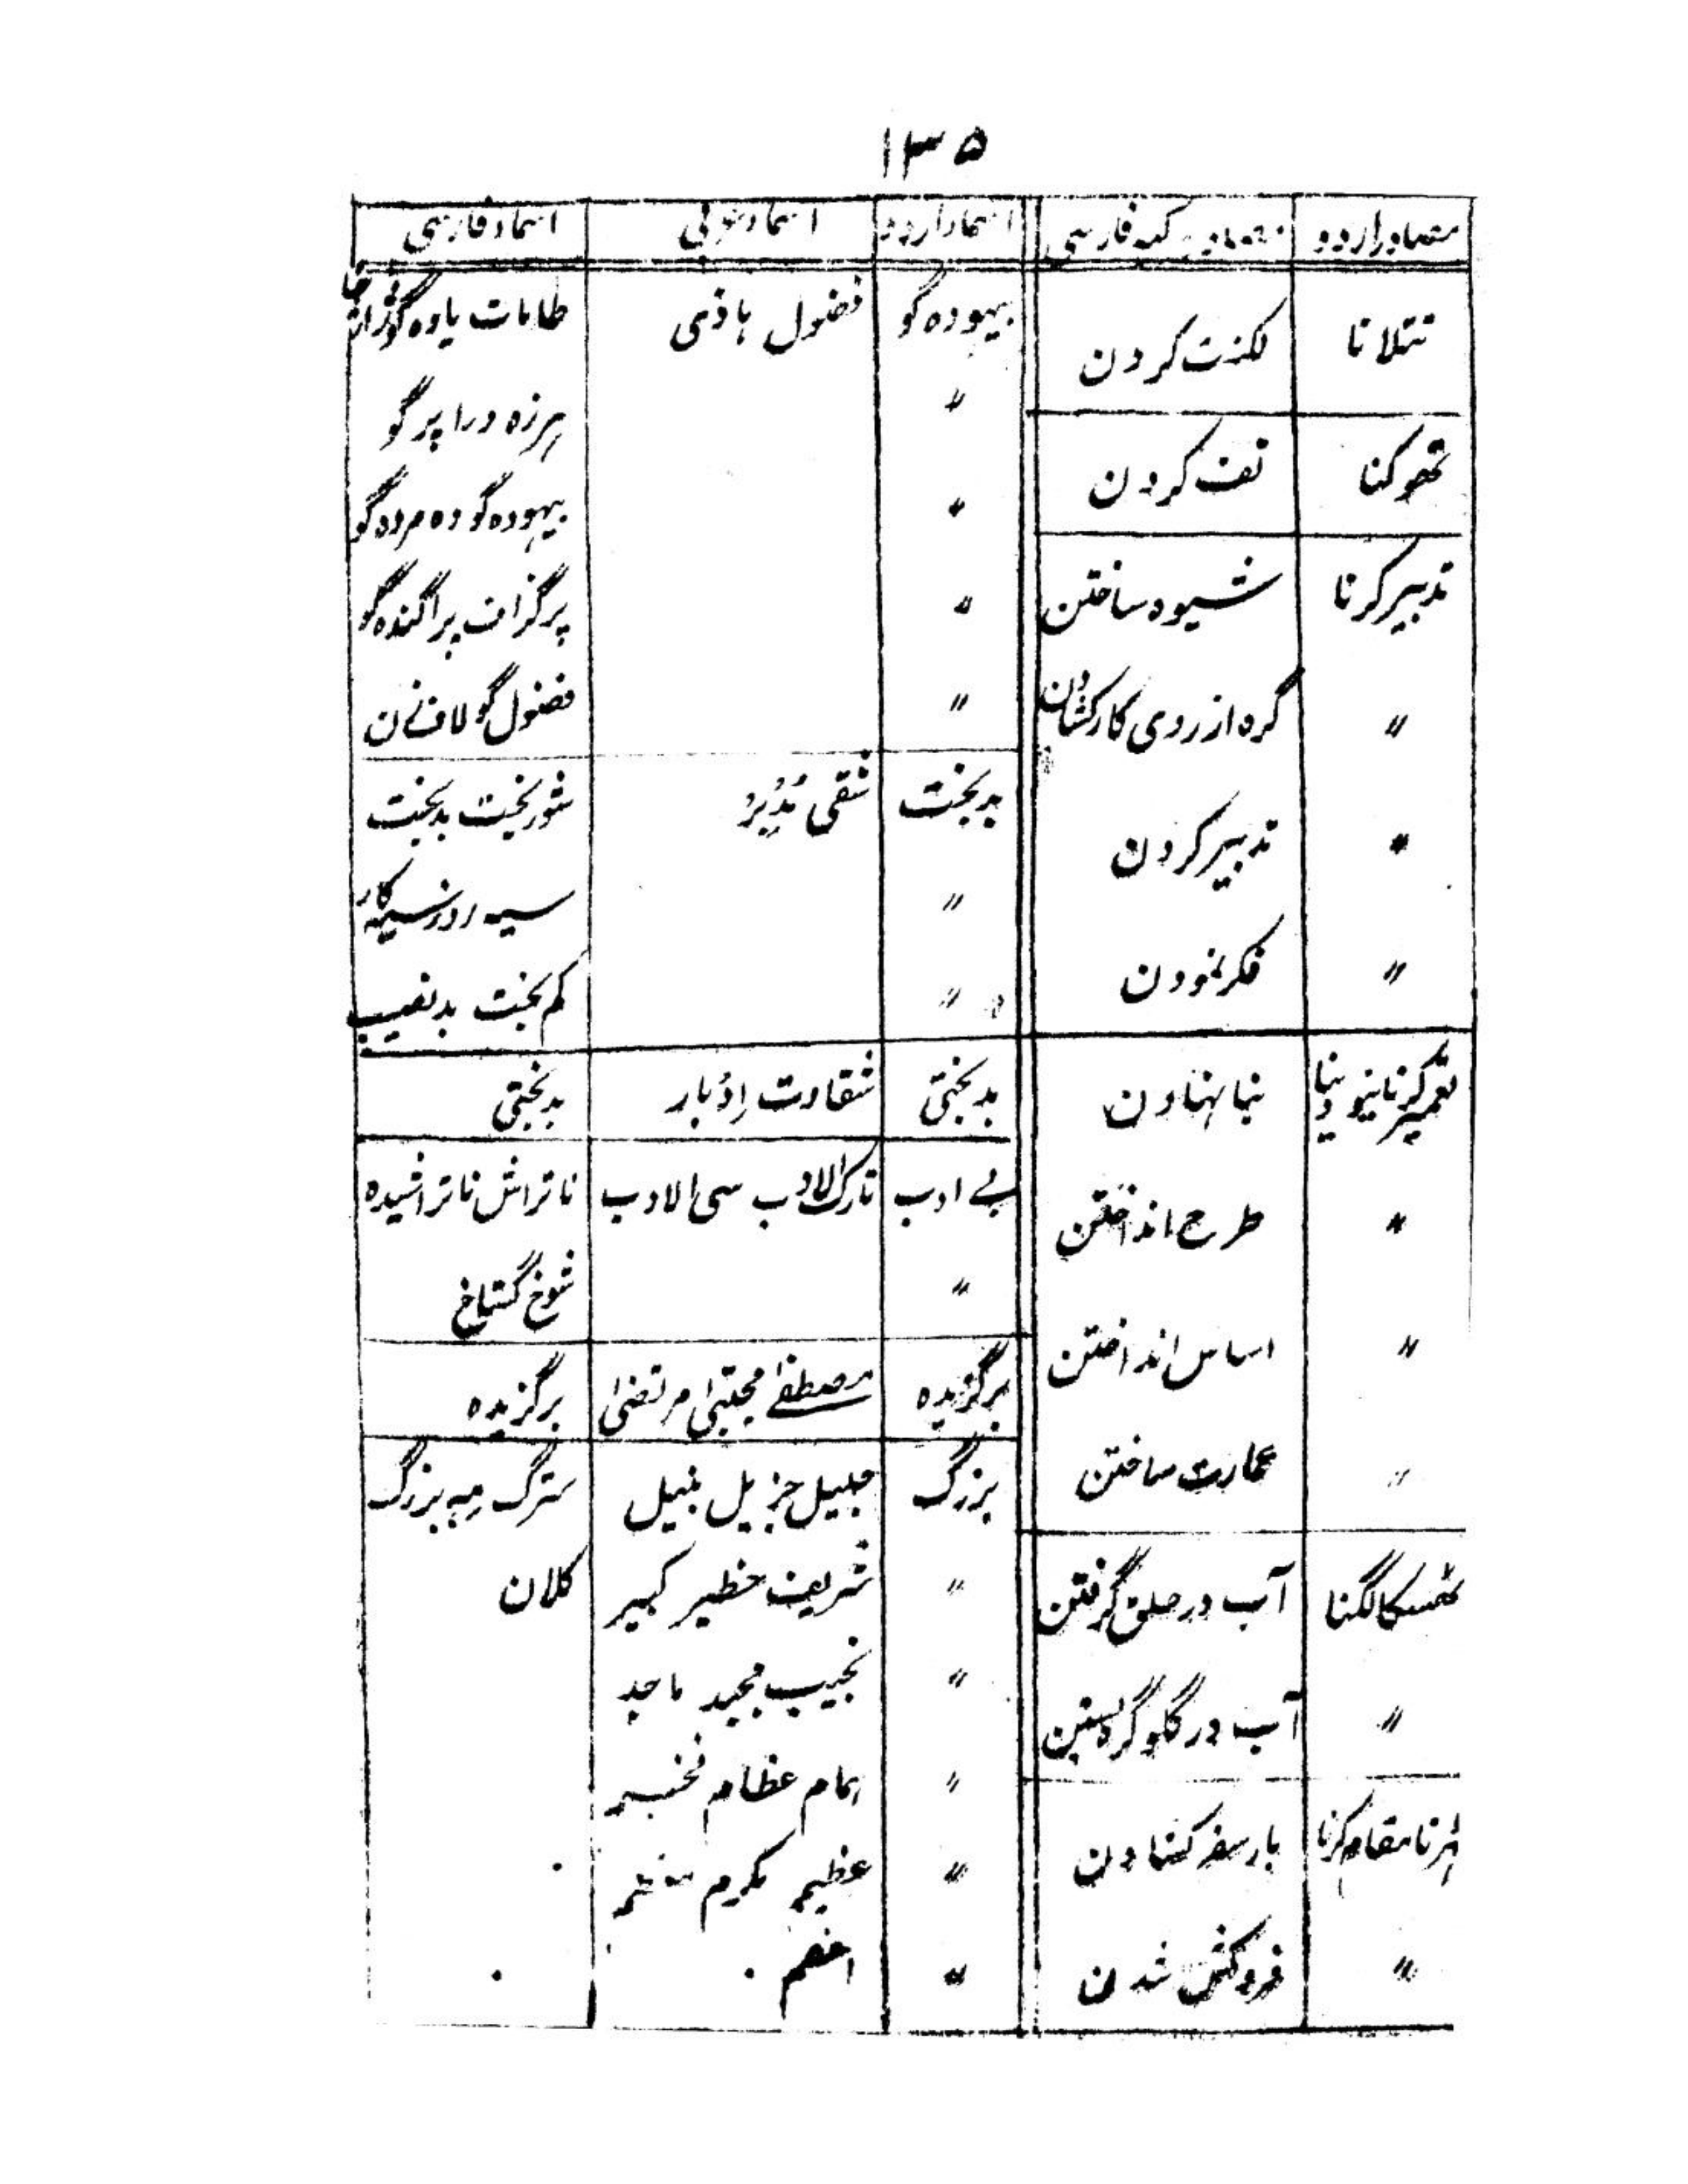 ۱۳۵
مصادر اردو | مصادر مرکبہ فارسی | اسماء اردو | اسماء عربی | اسماء فارسی
تتلانا | لکنت کردن
تھوکنا | تف کردن
تدبیر کرنا | شیوہ ساختن
〃 | گرہ از روی کار کشادن
〃 | تدبیر کردن
〃 | فکر نمودن
تعمیر کرنا نیو دینا | بنا نہادن
〃 | طرح انداختن
〃 | اساس انداختن
〃 | عمارت ساختن
ٹھسکا لگنا | آب در حلق گرفتن
〃 | آب در گلو گرہ بستن
مقام کرنا | بار سفر کشادن
〃 | فروکش شدن
بیہودہ گو | فضول ہاذی | طامات یاوہ گو ژاژخا
〃 | ہرزہ درا پرگو
〃 | بیہودہ گو دہ مردہ گو
〃 | پرگزاف پراگندہ گو
〃 | فضول گو لاف زن
بدبخت | شقی مُدْبِرْ | شوربخت بدبخت
〃 | سیہ روز سیہ کار
〃 | کم بخت بدنصیب
بدبختی | شقاوت اِدْبار | بدبختی
بے ادب | تارک الادب سی الادب | ناتراش ناتراشیدہ
〃 | شوخ گستاخ
برگزیدہ | مصطفےٰ مجتبیٰ مرتضیٰ | برگزیدہ
بزرگ | جلیل جزیل نبیل | سترگ مِہ بزرگ
〃 | شریف خطیر کبیر | کلان
〃 | نجیب مجید ماجد
〃 | ہمام عظام فخیم
〃 | عظیم مکرم
〃 | افخم